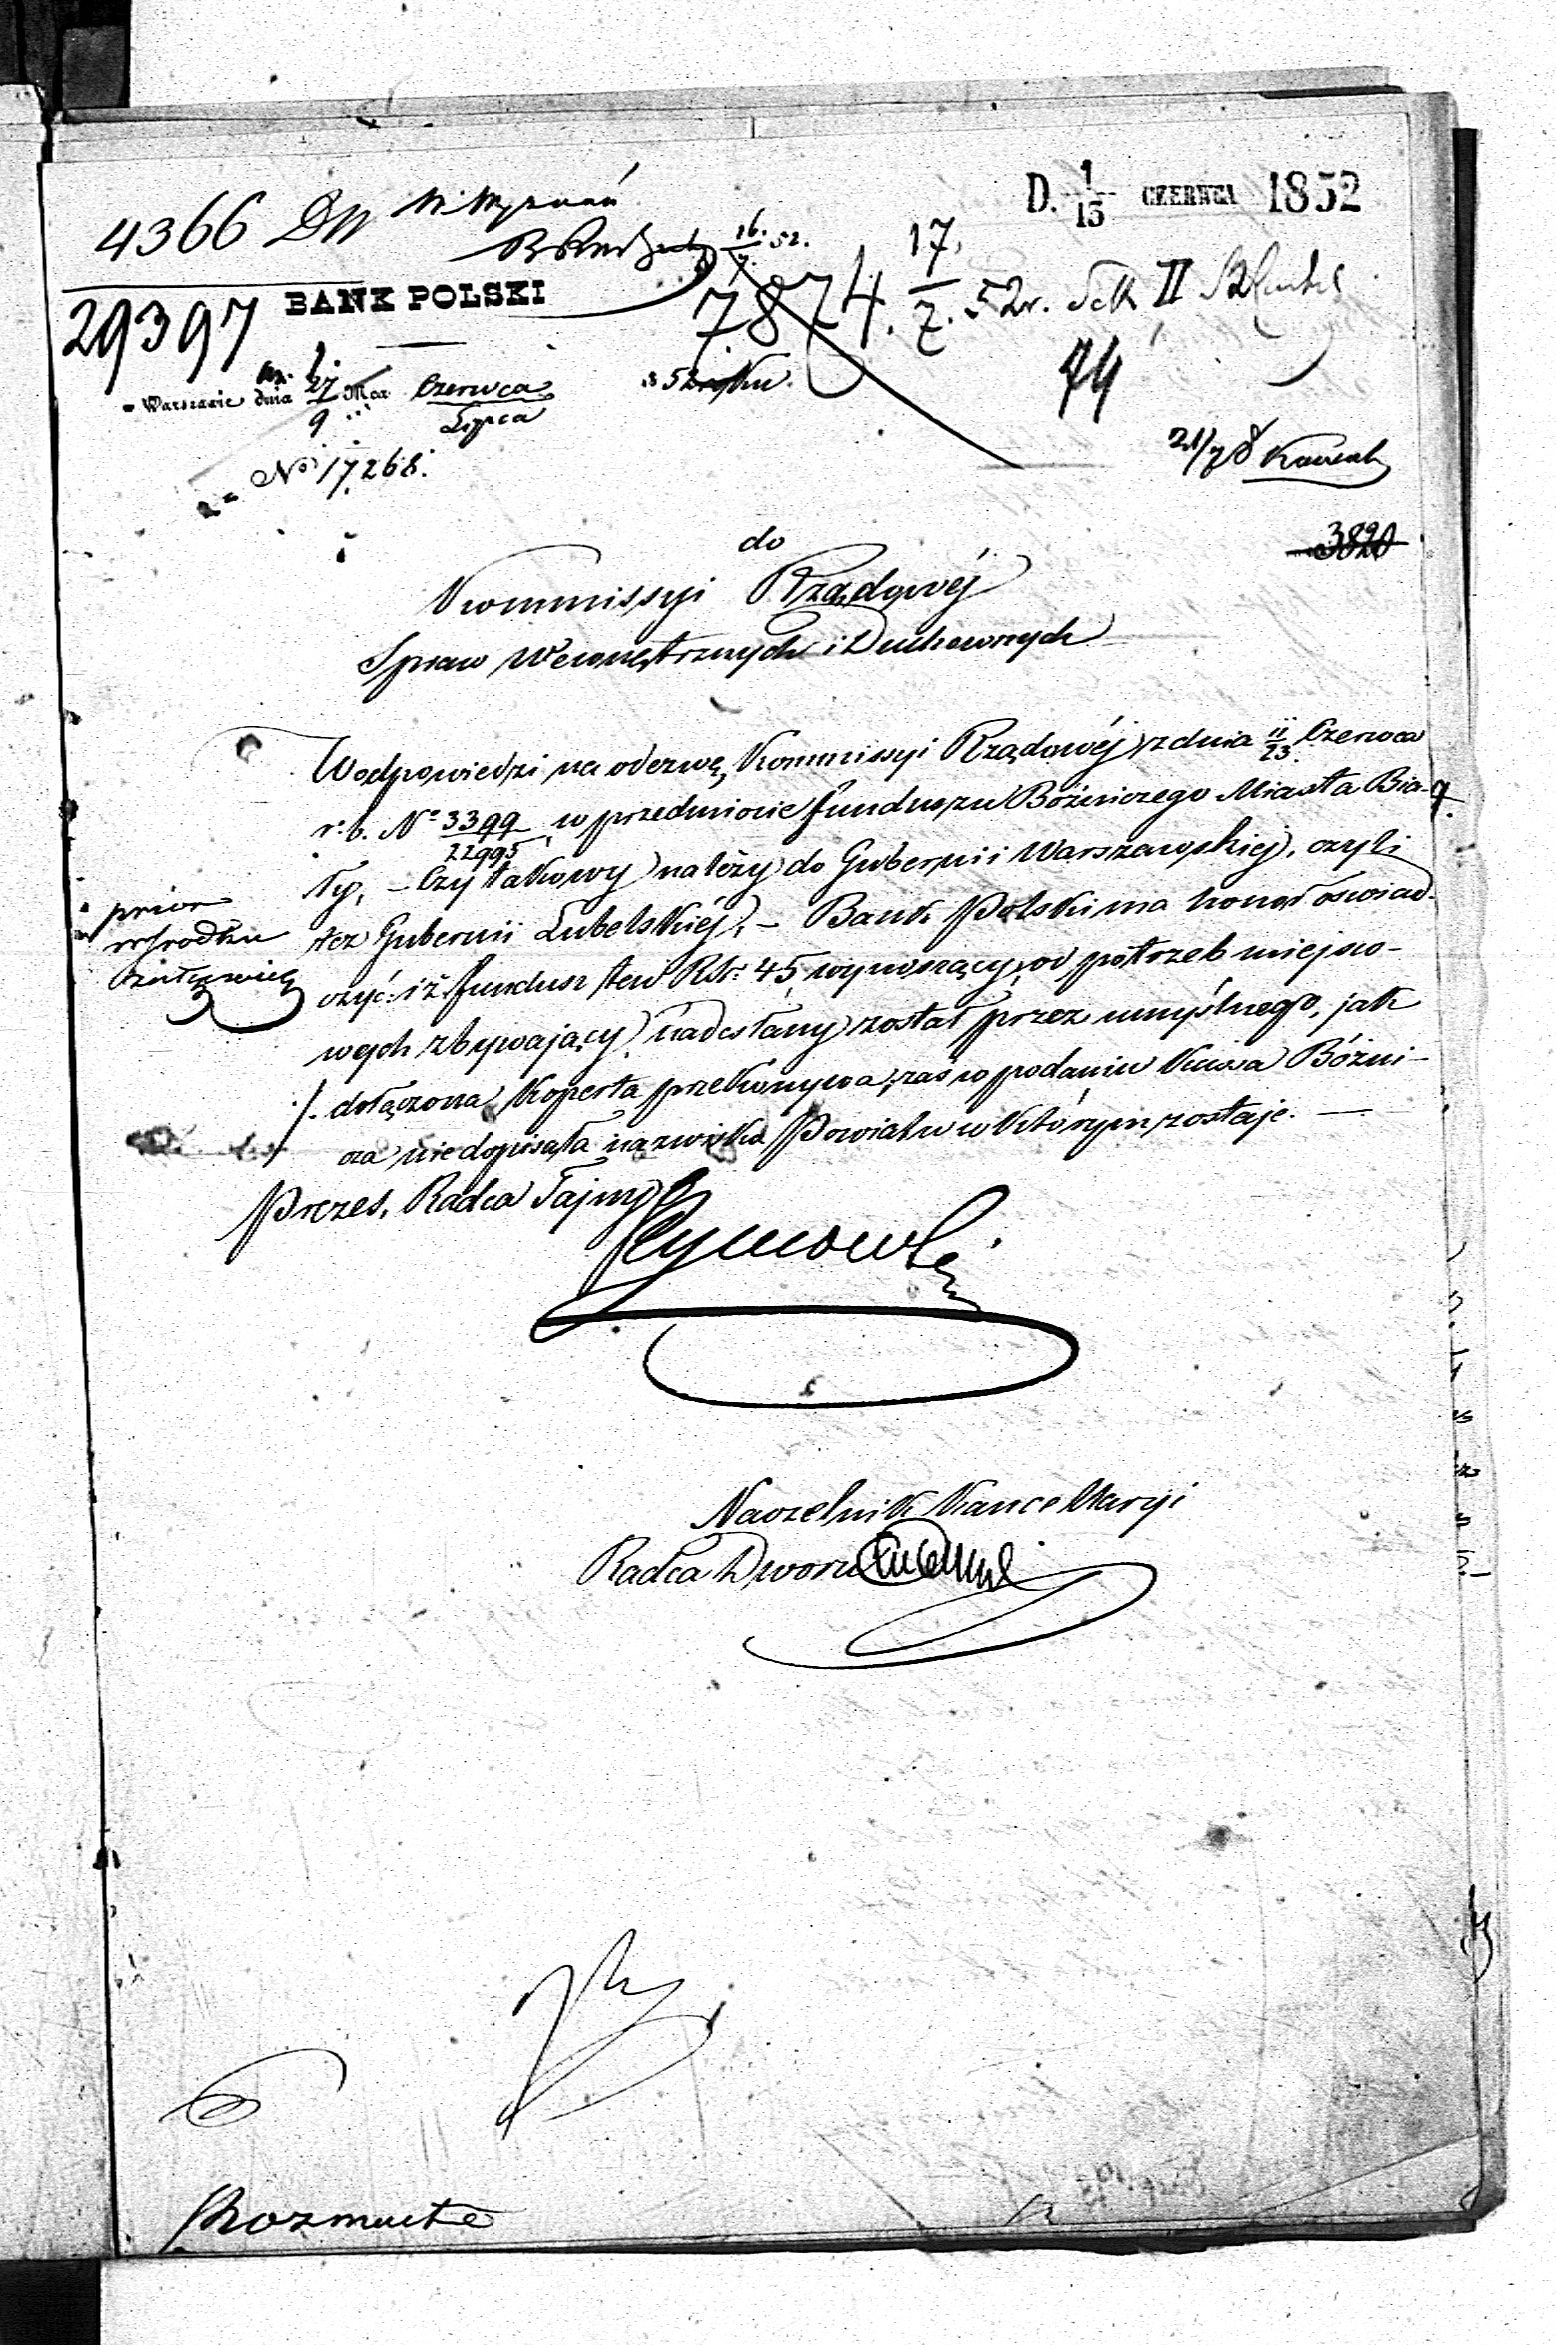 D. 1/15 CZERWCA 1852
4366 DW
16/7 52.
29397 BANK POLSKI
7874. 17/7. 52r. II
w Warszawie dnia 27/9 Czerwca/Lipca 1852 roku.
74
No 17,268.
21/7
3820
do
Kommissyi Rządowéj
Spraw Wewnętrznych i Duchownych
W odpowiedzi na odezwę Kommissyi Rządowéj z dnia 11/23 Czerwca
r. b. No 3399/22995 w przedmiocie funduszu Bóżniczego Miasta Bia-
ły, – Czy takowy należy do Gubernii Warszawskiej, czyli
też Gubernii Lubelskiéj, – Bank Polski ma honor oświad-
czyć: iż fundusz ten Rsr. 45 wynoszący, od potrzeb miejsco-
wych zbywający, nadesłany został przez umyślnego, jak
./. dołączona koperta przekonywa, zaś w podaniu Kassa Bóżni-
cza niedopisała nazwiska Powiatu w którym zostaje. —
Prezes, Radca Tajny
Naczelnik Kancellaryi
Radca Dworu